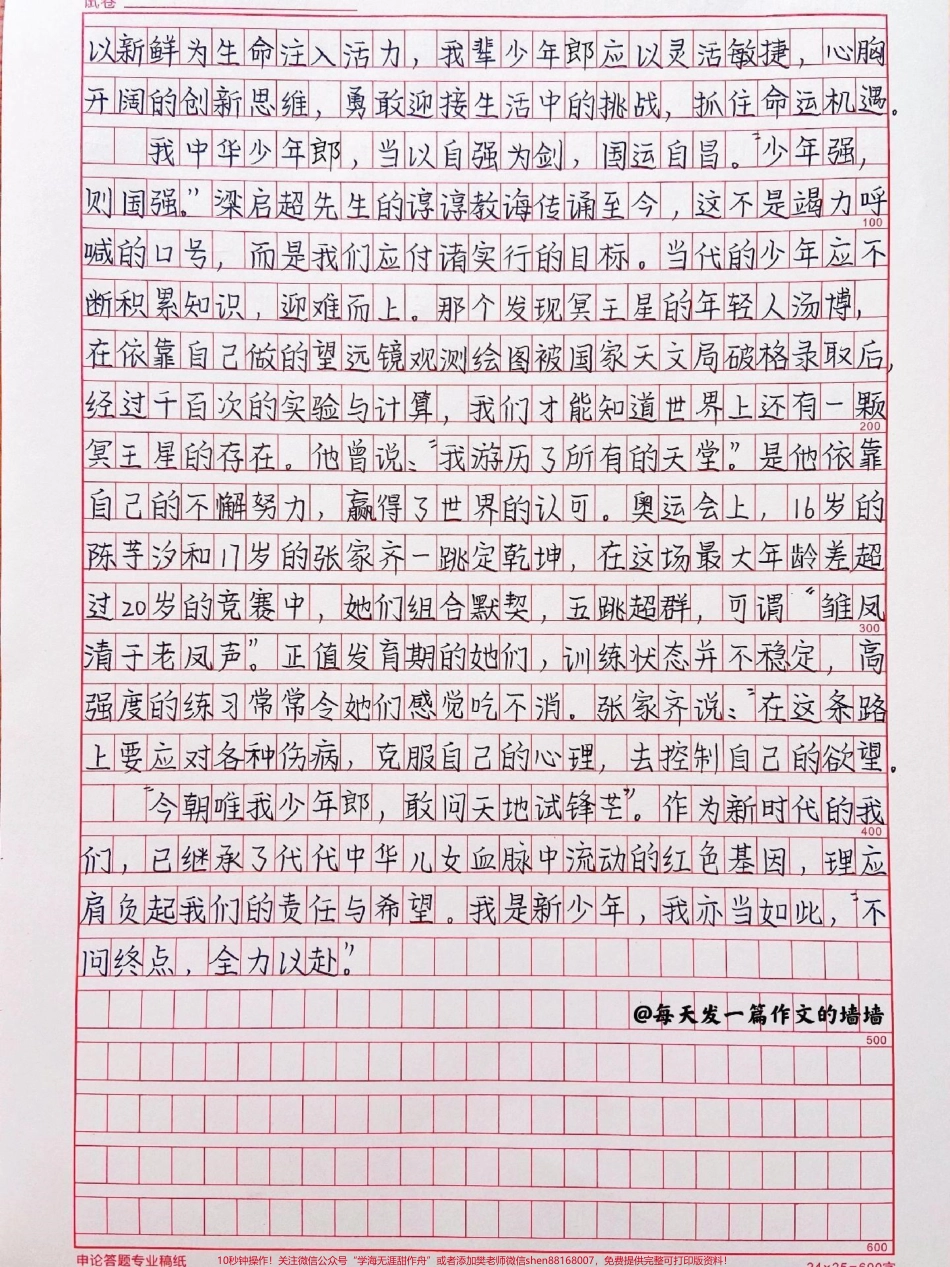 试卷
以新鲜为生命注入活力，我辈少年郎应以灵活敏捷，心胸
开阔的创新思维，勇敢迎接生活中的挑战，抓住命运机遇。
我中华少年郎，当以自强为剑，国运自昌。“少年强，
则国强。”梁启超先生的谆谆教诲传诵至今，这不是竭力呼
100
喊的口号，而是我们应付诸实行的目标。当代的少年应不
断积累知识，迎难而上。那个发现冥王星的年轻人汤博，
在依靠自己做的望远镜观测绘图被国家天文局破格录取后，
经过千百次的实验与计算，我们才能知道世界上还有一颗
200
冥王星的存在。他曾说：“我游历了所有的天堂”。是他依靠
自己的不懈努力，赢得了世界的认可。奥运会上，16岁的
陈芋汐和17岁的张家齐一跳定乾坤，在这场最大年龄差超
过20岁的竞赛中，她们组合默契，五跳超群，可谓“雏凤
300
清于老凤声”。正值发育期的她们，训练状态并不稳定，高
强度的练习常常令她们感觉吃不消。张家齐说：“在这条路
上要应对各种伤病，克服自己的心理，去控制自己的欲望。
“今朝唯我少年郎，敢问天地试锋芒”。作为新时代的我
400
们，已继承了代代中华儿女血脉中流动的红色基因，理应
肩负起我们的责任与希望。我是新少年，我亦当如此，“不
问终点，全力以赴”。
@每天发一篇作文的墙墙
500
600
申论答题专业稿纸
10秒钟操作！关注微信公众号“学海无涯甜作舟”或者添加樊老师微信shen88168007，免费提供完整可打印版资料！
24×25=600字